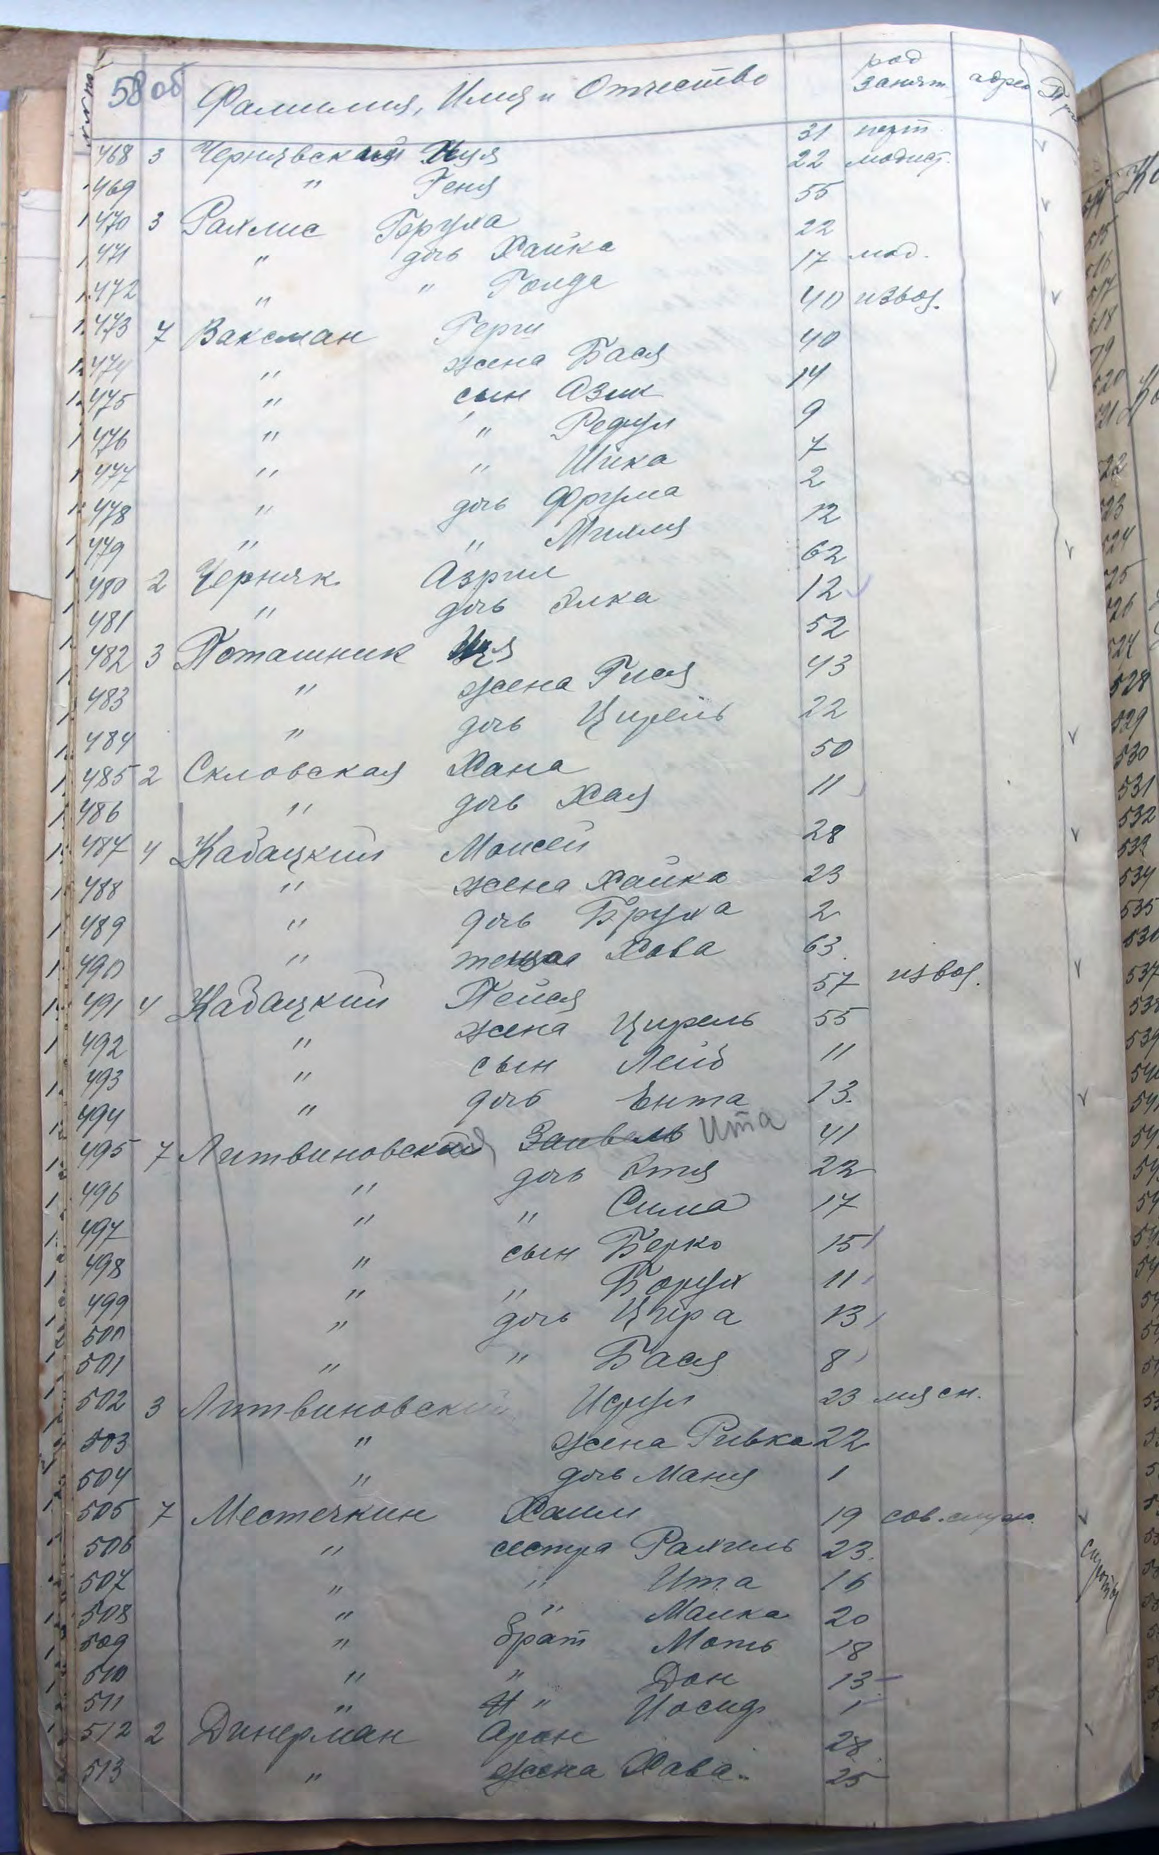 58об
№№ Фамилия, Имя и Отчество род занят. адрес
468 3 Чернявский 31 порт.
469 " Геня 22 модист.
470 3 Рахлис Бруха 55
471 " дочь Хайка 22
472 " " Голда 17 мод.
473 7 Ваксман Герш 40 извоз.
474 " жена Бася 40
475 " сын Азик 14
476 " " 9
477 " " Шика 7
478 " дочь Фрума 2
479 " " 12
480 2 Черняк Азрил 62
481 " дочь Элка 12
482 3 Поташник 52
483 " жена Гися 43
484 " дочь Цирель 22
485 2 Скловская Хана 50
486 " дочь Хая 11
487 4 Кабацкий Моисей 28
488 " жена Хайка 23
489 " дочь Бруха 2
490 " теща Хава 63.
491 4 Кабацкий Пейся 57 извоз.
492 " жена Цирель 55
493 " сын Лейб 11
494 " дочь Ента 13.
495 7 Литвиновская Зайвель Ита 41
496 " дочь Этя 22
497 " " Сима 17
498 " сын Берко 15
499 " " Борух 11
500 " дочь Цира 13
501 " " Бася 8
502 3 Литвиновский Исрул 23 мясн.
503 " жена Ривка 22
504 " дочь Маня 1
505 7 Местечкин Хаим 19 сов. служ.
506 " сестра Рахиль 23.
507 " " Ита 16
508 " " Малка 20
509 " брат Моть 18
510 " " Дон 13
511 " " Иосиф 1
512 2 Динерман Арон 28
513 " жена Хава 25
сироты
528
529
530
531
532
534
535
537